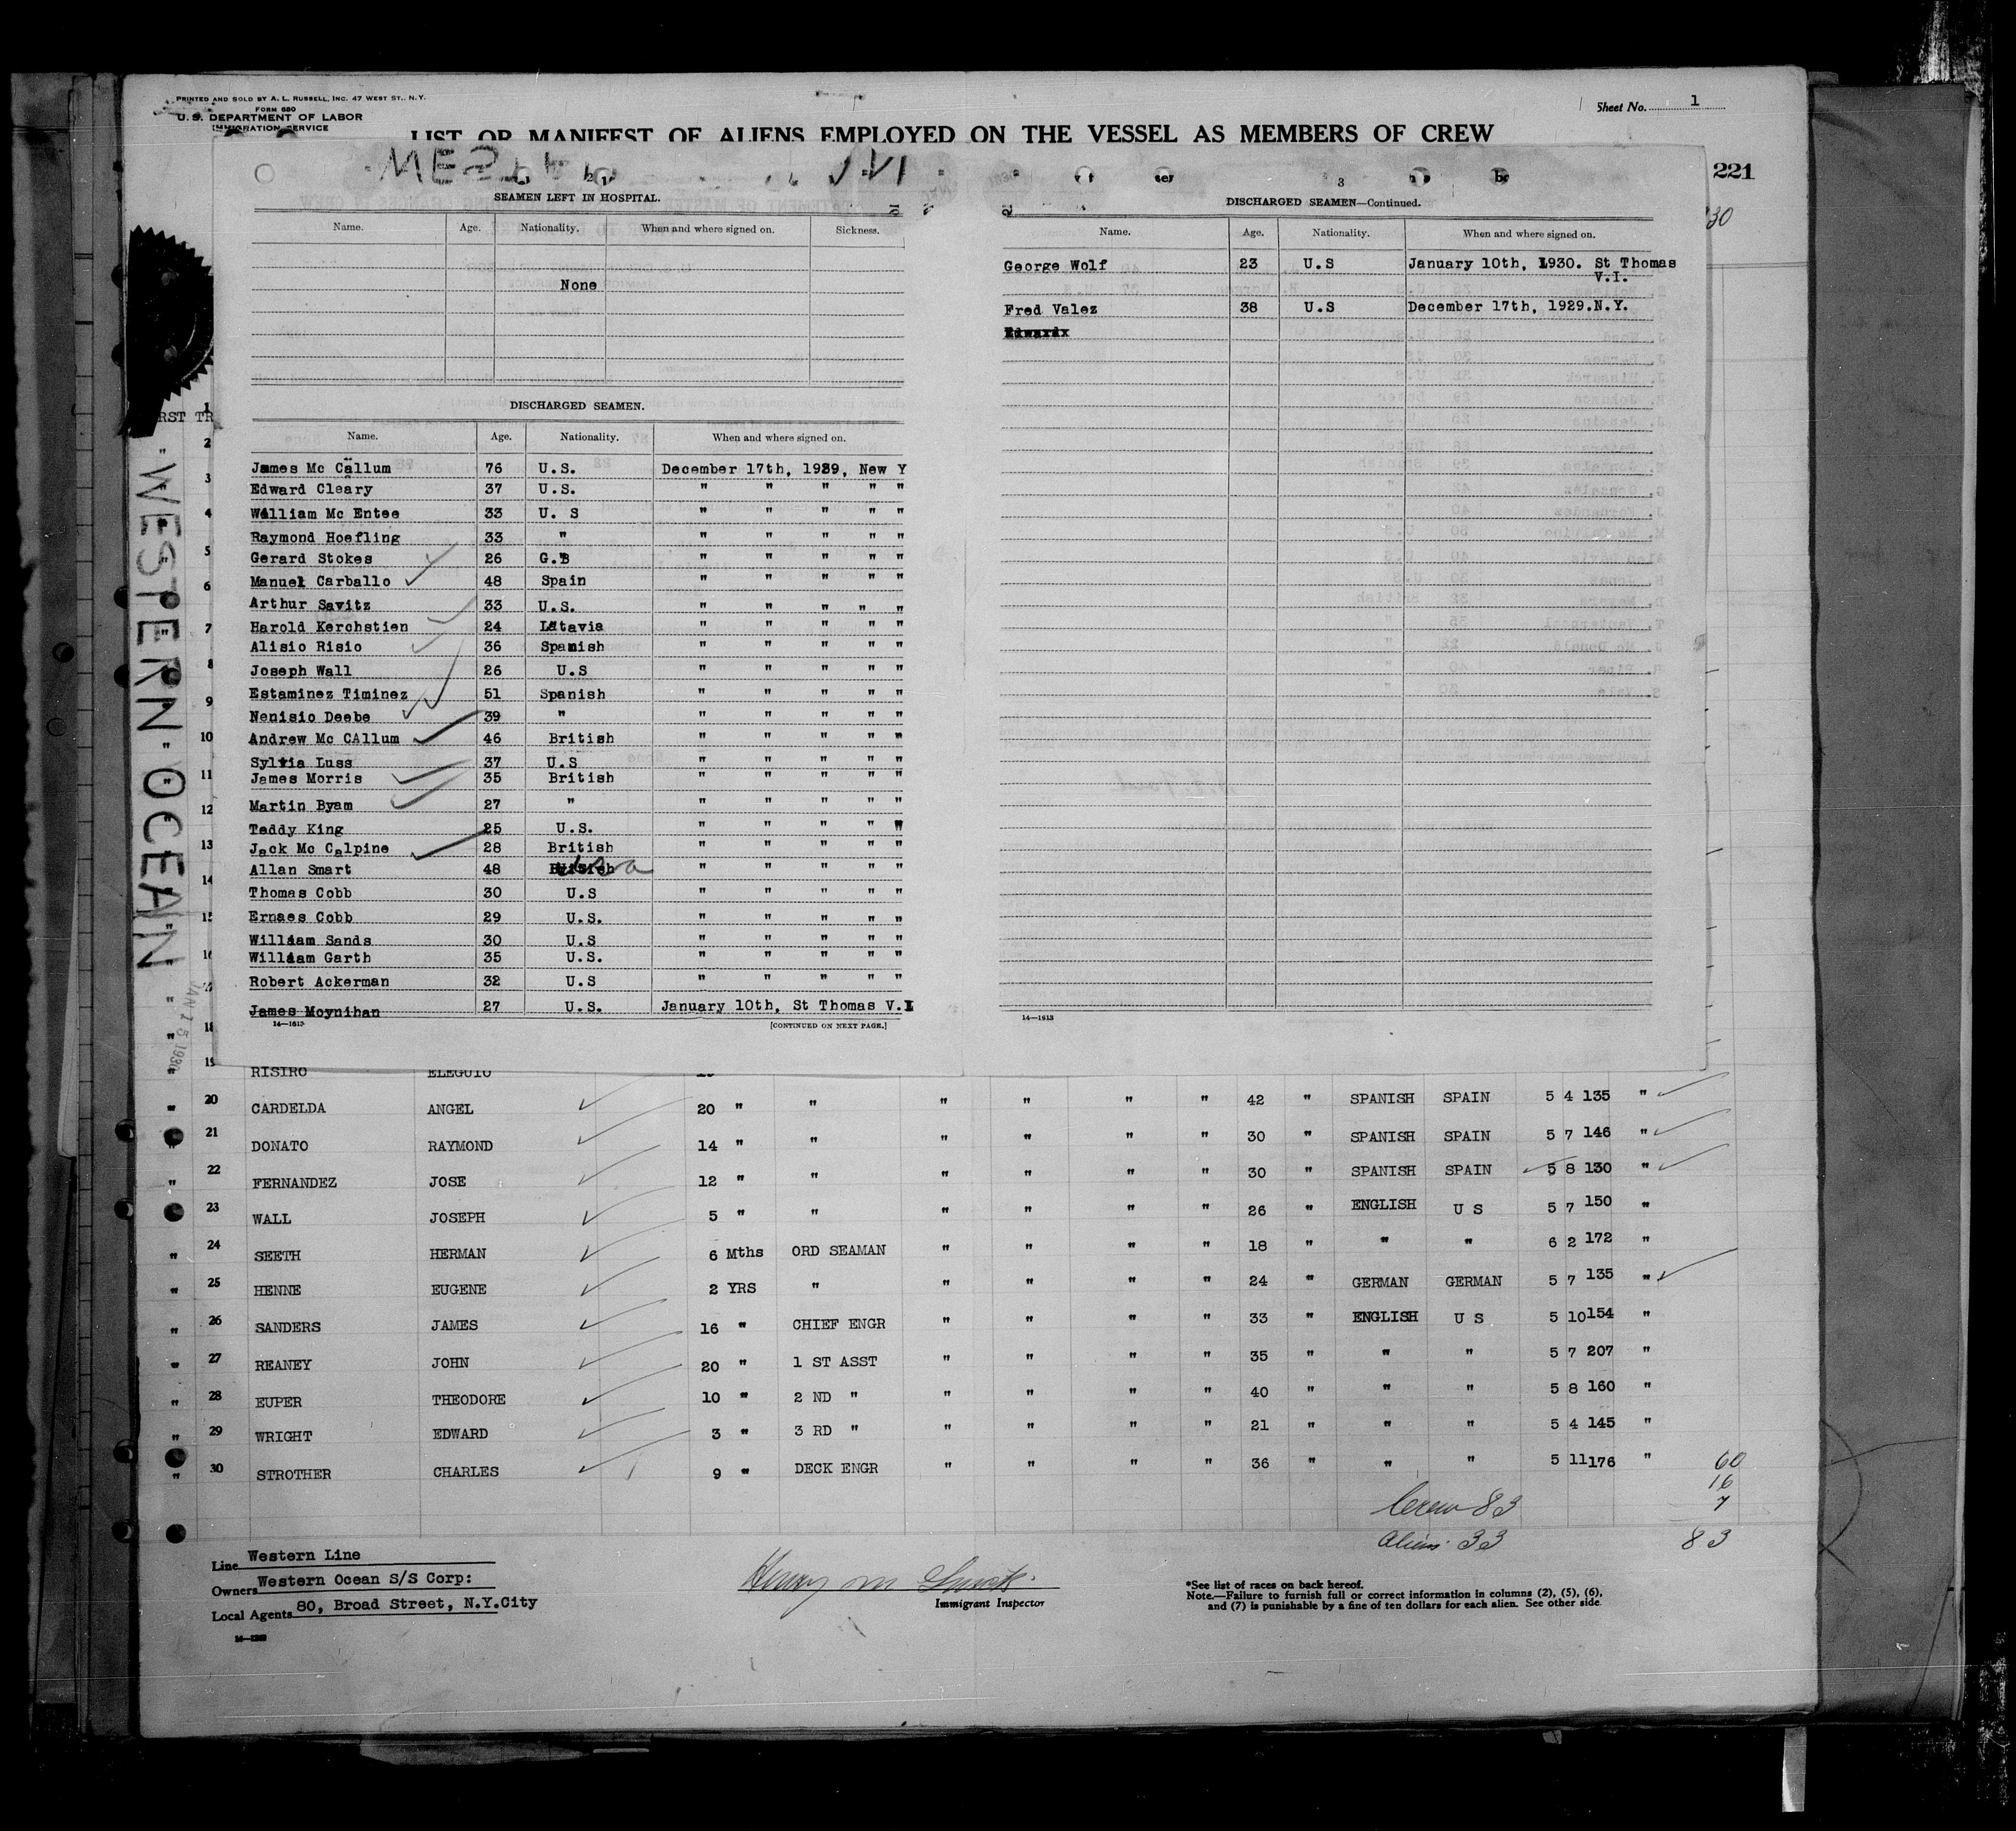 PRINTED AND SOLD BY A. L. RUSSELL, INC. 47 WEST ST., N.Y.
FORM 680
U. S. DEPARTMENT OF LABOR
IMMIGRATION SERVICE
Sheet No. 1
LIST OR MANIFEST OF ALIENS EMPLOYED ON THE VESSEL AS MEMBERS OF CREW
221
WESTERN OCEAN
JAN 15 1930
2
SEAMEN LEFT IN HOSPITAL.
Name. Age. Nationality. When and where signed on. Sickness.
None
DISCHARGED SEAMEN.
Name. Age. Nationality. When and where signed on.
James Mc Callum 76 U.S. December 17th, 1929, New Y
Edward Cleary 37 U.S. " " " " "
William Mc Entee 33 U. S " " " " "
Raymond Hoefling 33 " " " " " "
Gerard Stokes 26 G.B " " " " "
Manuel Carballo 48 Spain " " " " "
Arthur Savitz 33 U.S. " " " " "
Harold Kerchstien 24 Latavia " " " " "
Alisio Risio 36 Spanish " " " " "
Joseph Wall 26 U.S " " " " "
Estaminez Timinez 51 Spanish " " " " "
Nenisio Deebe 39 " " " " " "
Andrew Mc CAllum 46 British " " " " "
Sylvia Luss 37 U.S " " " " "
James Morris 35 British " " " " "
Martin Byam 27 " " " " " "
Teddy King 25 U.S. " " " " "
Jack Mc Calpine 28 British " " " " "
Allan Smart 48 British " " " " "
Thomas Cobb 30 U.S " " " " "
Ernaes Cobb 29 U.S. " " " " "
William Sands 30 U.S " " " " "
William Garth 35 U.S. " " " " "
Robert Ackerman 32 U.S " " " " "
James Moynihan 27 U.S. January 10th, St Thomas V.I
14—1613 [CONTINUED ON NEXT PAGE.]
3
DISCHARGED SEAMEN—Continued.
Name. Age. Nationality. When and where signed on.
George Wolf 23 U.S January 10th, 1930. St Thomas
V.I.
Fred Valez 38 U.S December 17th, 1929.N.Y.
Edwardx
14—1613
19 RISIRO ELEGUIO
20 CARDELDA ANGEL 20 " " " " " " 42 " SPANISH SPAIN 5 4 135 "
21 DONATO RAYMOND 14 " " " " " " 30 " SPANISH SPAIN 5 7 146 "
22 FERNANDEZ JOSE 12 " " " " " " 30 " SPANISH SPAIN 5 8 130 "
23 WALL JOSEPH 5 " " " " " " 26 " ENGLISH U S 5 7 150 "
24 SEETH HERMAN 6 Mths ORD SEAMAN " " " " 18 " " " 6 2 172 "
25 HENNE EUGENE 2 YRS " " " " " 24 " GERMAN GERMAN 5 7 135 "
26 SANDERS JAMES 16 " CHIEF ENGR " " " " 33 " ENGLISH U S 5 10 154 "
27 REANEY JOHN 20 " 1 ST ASST " " " " 35 " " " 5 7 207 "
28 EUPER THEODORE 10 " 2 ND " " " " " 40 " " " 5 8 160 "
29 WRIGHT EDWARD 3 " 3 RD " " " " " 21 " " " 5 4 145 "
30 STROTHER CHARLES 9 " DECK ENGR " " " " 36 " " " 5 11 176 "
60
16
7
83
Crew 83
Aliens 33
Line Western Line
Owners Western Ocean S/S Corp:
Local Agents 80, Broad Street, N.Y.City
Henry M
Immigrant Inspector
*See list of races on back hereof.
Note.—Failure to furnish full or correct information in columns (2), (5), (6),
and (7) is punishable by a fine of ten dollars for each alien. See other side.